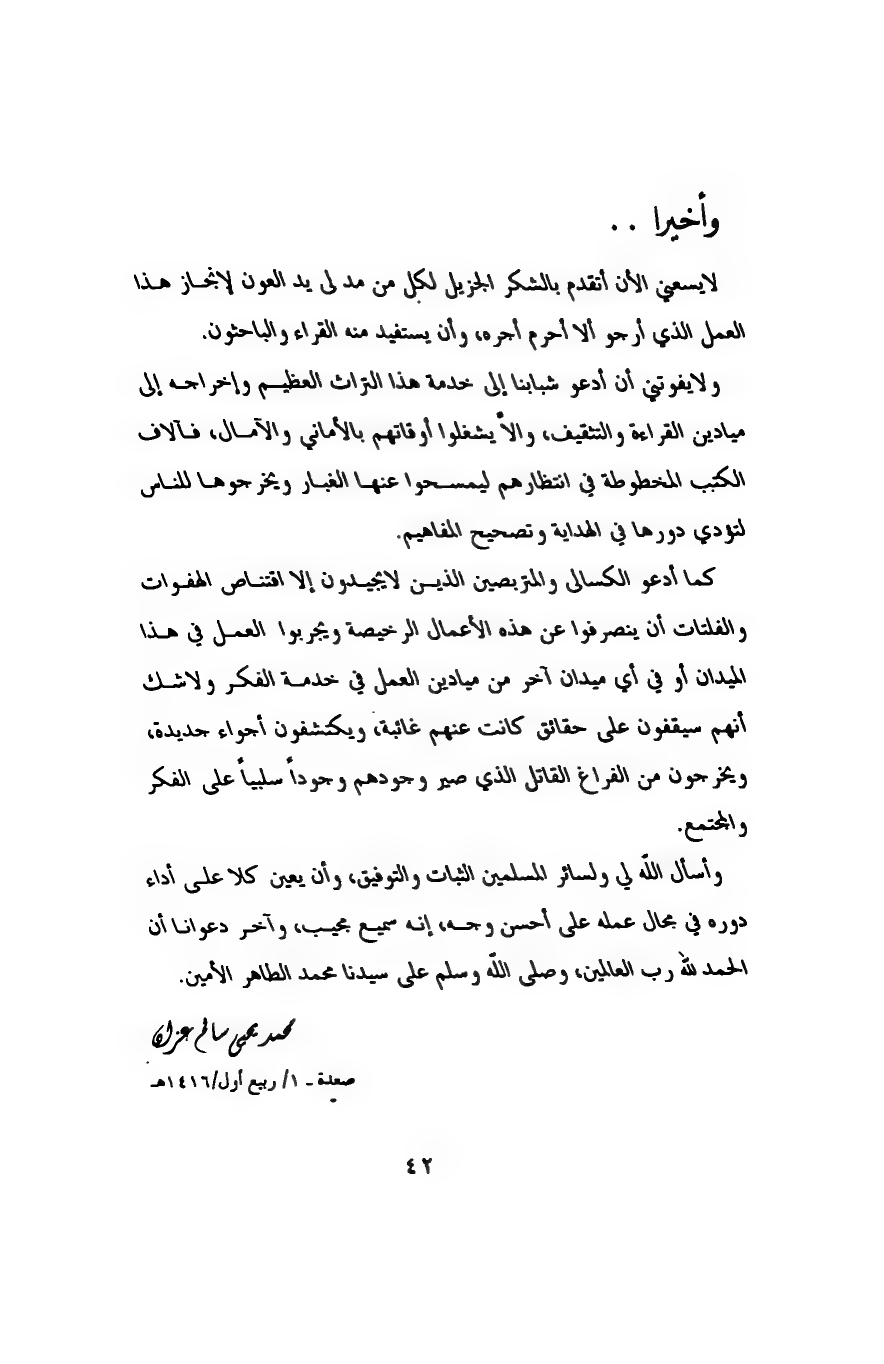 وأخيرا ..
لايسعني الأن أتقدم بالشكر الجزيل لكل من مد لى يد العون لإنجاز هذا
العمل الذي أرجو ألا أحرم أجره، وأن يستفيد منه القراء والباحثون.
ولايفوتني أن أدعو شبابنا إلى خدمة هذا التراث العظيم وإخراجه إلى
ميادين القراءة والتثقيف، والاً يشغلوا أوقاتهم بالأماني والآمال، فآلاف
الكتب المخطوطة في انتظارهم ليمسحوا عنها الغبار ويخرجوها للناس
لتؤدي دورها في الهداية وتصحيح المفاهيم.
كما أدعو الكسالى والمتربصين الذين لايجيدون إلا اقتناص الهفوات
والفلتات أن ينصرفوا عن هذه الأعمال الرخيصة ويجربوا العمل في هذا
الميدان أو في أي ميدان آخر من ميادين العمل في خدمة الفكر ولاشك
أنهم سيقفون على حقائق كانت عنهم غائبة، ويكتشفون أجواء جديدة،
ويخرجون من الفراغ القاتل الذي صير وجودهم وجوداً سلبياً على الفكر
والمجتمع.
وأسأل الله لي ولسائر المسلمين الثبات والتوفيق، وأن يعين كلا على أداء
دوره في مجال عمله على أحسن وجه، إنه سميع مجيب، وآخر دعوانا أن
الحمد لله رب العالمين، وصلى الله وسلم على سيدنا محمد الطاهر الأمين.
محمد يحيى سالم عزان
صعدة - ١/ ربيع أول/١٤١٦هـ
٤٢